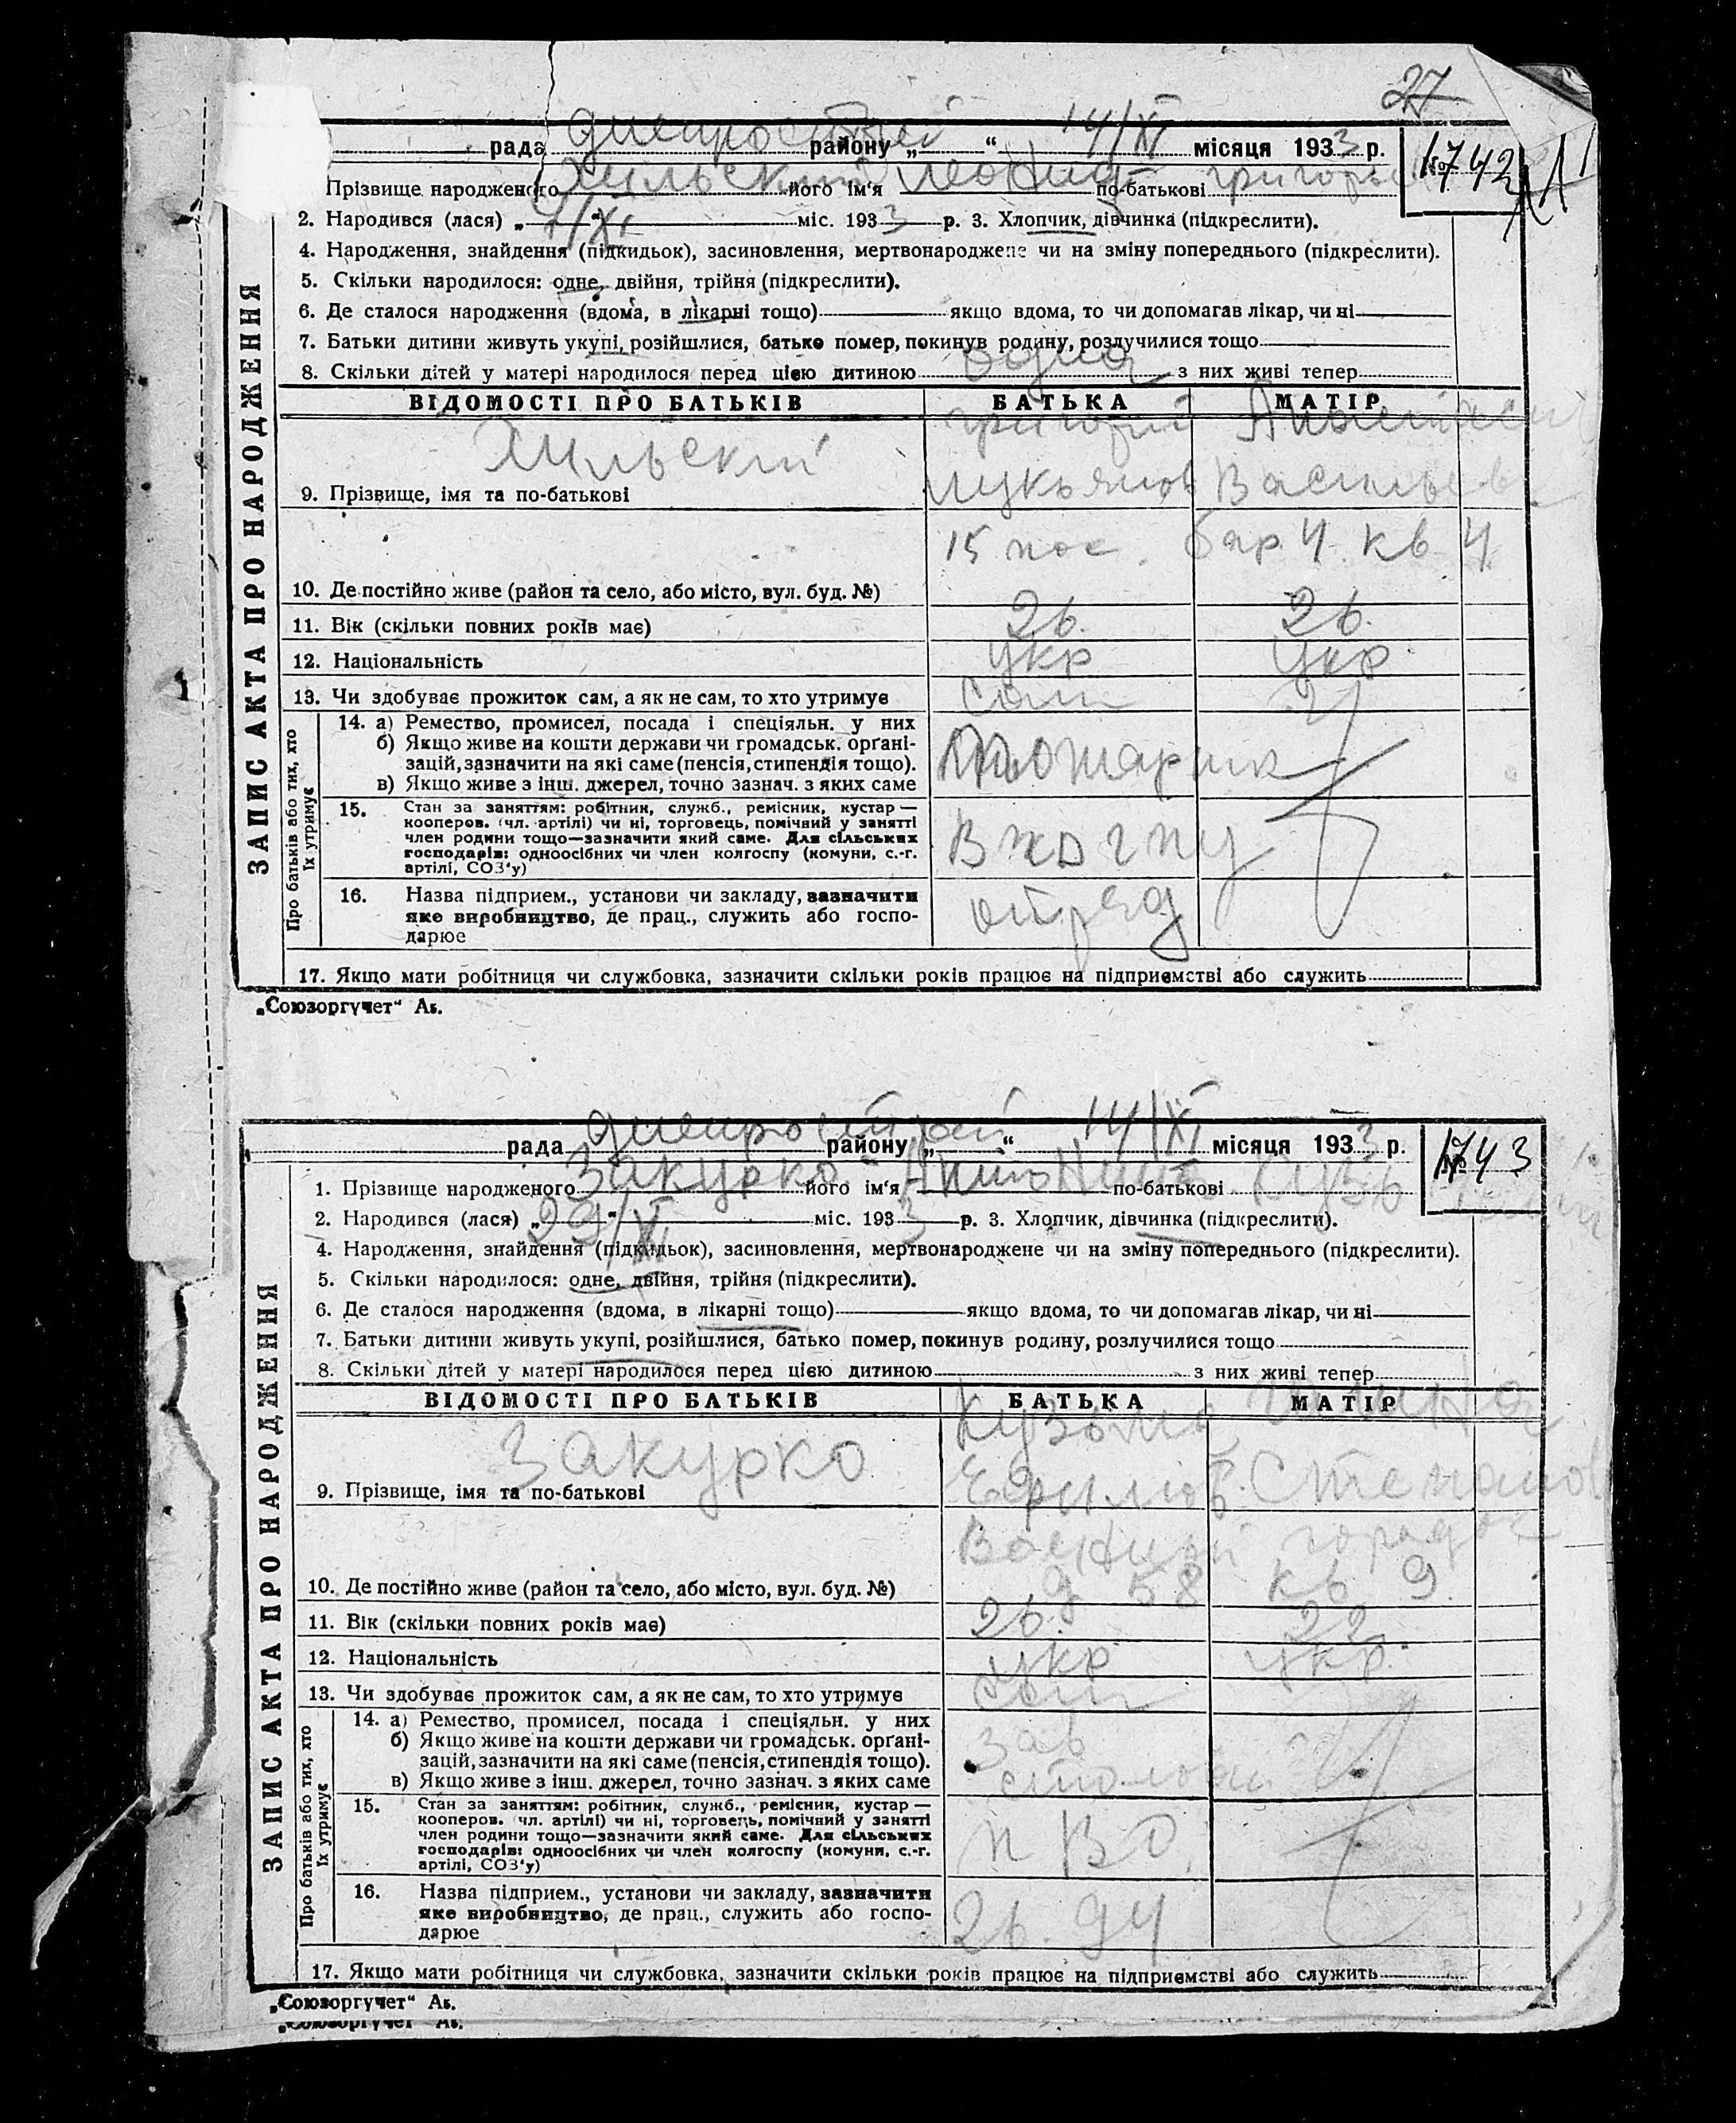 27
рада днепрострой району „ “ 14/XI місяця 1933 р. № 742
Прізвище народженого Хильский його ім‘я Леонид по-батькові григорь
2. Народився (лася) „ 7/XI міс. 1933 р. 3. Хлопчик, дівчинка (підкреслити).
4. Народження, знайдення (підкидьок), засиновлення, мертвонароджене чи на зміну попереднього (підкреслити).
5. Скільки народилося: одне, двійня, трійня (підкреслити).
6. Де сталося народження (вдома, в лікарні тощо) якщо вдома, то чи допомагав лікар, чи ні
7. Батьки дитини живуть укупі, розійшлися, батько помер, покинув родину, розлучилися тощо
8. Скільки дітей у матері народилося перед цією дитиною одна з них живі тепер
ЗАПИС АКТА ПРО НАРОДЖЕННЯ
ВІДОМОСТІ ПРО БАТЬКІВ БАТЬКА МАТІР
Хильский григорий Анастаси
9. Прізвище, імя та по-батькові Лукьянов Васильев
15 пос. бар 4 кв 4
10. Де постійно живе (район та село, або місто, вул. буд. №)
11. Вік (скільки повних років має) 26. 26.
12. Національність укр укр
13. Чи здобуває прожиток сам, а як не сам, то хто утримує сам
Про батьків або тих, хто їх утримує
14. а) Ремество, промисел, посада і спеціяльн. у них
б) Якщо живе на кошти держави чи громадськ. орґані-
зацій, зазначити на які саме (пенсія, стипендія тощо).
в) Якщо живе з інш. джерел, точно зазнач. з яких саме
пожарник
15. Стан за заняттям: робітник, служб., ремісник, кустар —
кооперов. (чл. артілі) чи ні, торговець, помічний у занятті
член родини тощо—зазначити який саме. Для сільських
господарів: одноосібних чи член колгоспу (комуни, с.-г.
артілі, СОЗ‘у)
16. Назва підприєм., установи чи закладу, зазначити
яке виробництво, де прац., служить або госпо-
дарює
отряд
17. Якщо мати робітниця чи службовка, зазначити скільки років працює на підприємстві або служить
„Союзоргучет“
рада днепрострой району „ “ 14/XI місяця 1933 р. № 1743
1. Прізвище народженого Закурко його ім‘я Антонина по-батькові
2. Народився (лася) „ 29/XI міс. 1933 р. 3. Хлопчик, дівчинка (підкреслити).
4. Народження, знайдення (підкидьок), засиновлення, мертвонароджене чи на зміну попереднього (підкреслити).
5. Скільки народилося: одне, двійня, трійня (підкреслити).
6. Де сталося народження (вдома, в лікарні тощо) якщо вдома, то чи допомагав лікар, чи ні
7. Батьки дитини живуть укупі, розійшлися, батько помер, покинув родину, розлучилися тощо
8. Скільки дітей у матері народилося перед цією дитиною з них живі тепер
ЗАПИС АКТА ПРО НАРОДЖЕННЯ
ВІДОМОСТІ ПРО БАТЬКІВ БАТЬКА МАТІР
Закурко Кузьма
9. Прізвище, імя та по-батькові Ефимов Степанов
Военний городок
10. Де постійно живе (район та село, або місто, вул. буд. №) д 58 кв 9.
11. Вік (скільки повних років має) 26. 22
12. Національність укр укр.
13. Чи здобуває прожиток сам, а як не сам, то хто утримує сам
Про батьків або тих, хто їх утримує
14. а) Ремество, промисел, посада і спеціяльн. у них
б) Якщо живе на кошти держави чи громадськ. орґані-
зацій, зазначити на які саме (пенсія, стипендія тощо).
в) Якщо живе з інш. джерел, точно зазнач. з яких саме
зав
столовой
15. Стан за заняттям: робітник, служб., ремісник, кустар —
кооперов. чл. артілі) чи ні, торговець, помічний у занятті
член родини тощо—зазначити який саме. Для сільських
господарів: одноосібних чи член колгоспу (комуни, с.-г.
артілі, СОЗ‘у)
16. Назва підприєм., установи чи закладу, зазначити
яке виробництво, де прац., служить або госпо-
дарює
17. Якщо мати робітниця чи службовка, зазначити скільки років працює на підприємстві або служить
„Союзоргучет“